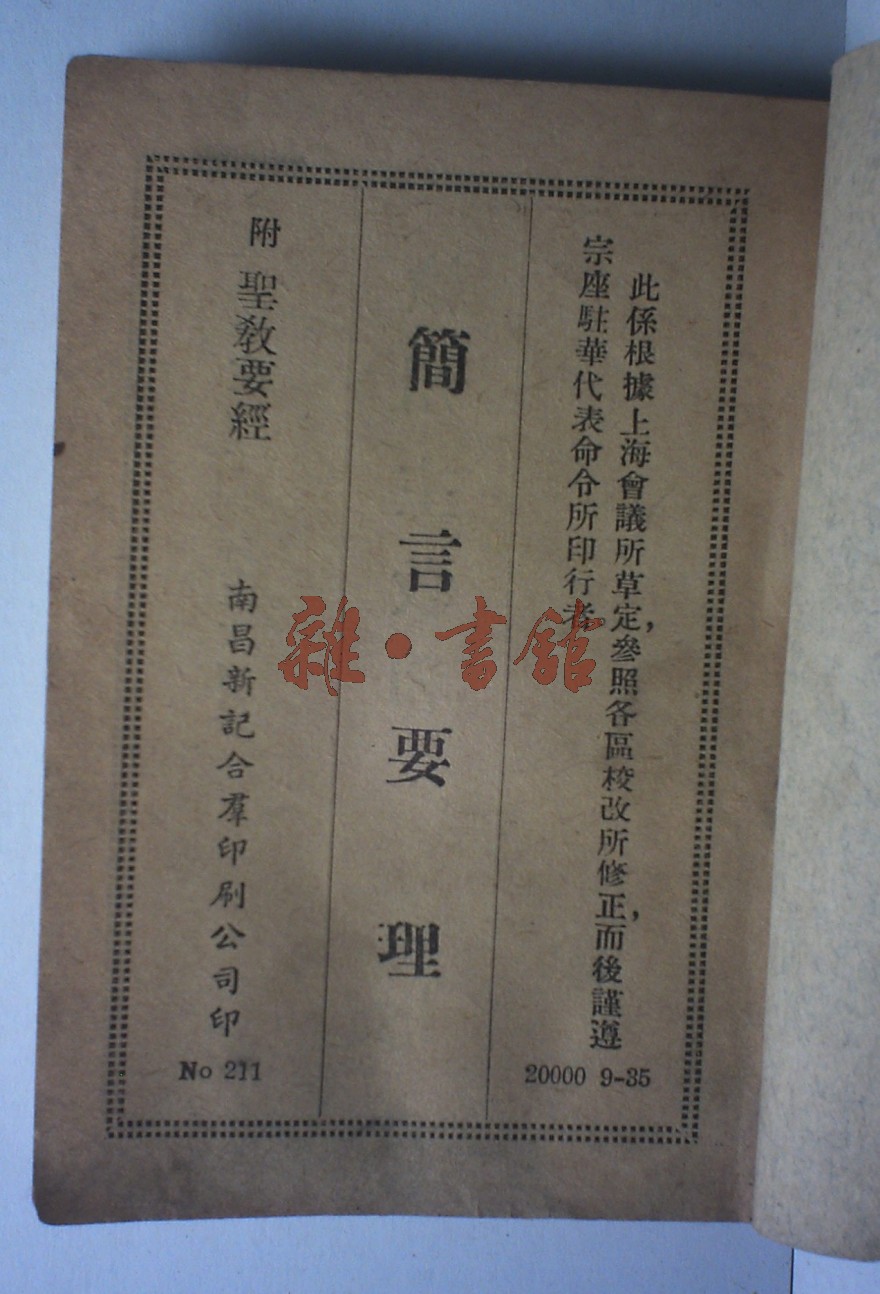 此係根據上海會議所草定，參照各區校改所修正，而後謹遵
宗座駐華代表命令所印行者。
20000 9-35
簡言要理
附 聖教要經
南昌新記合羣印刷公司印
No 211
雜·書館